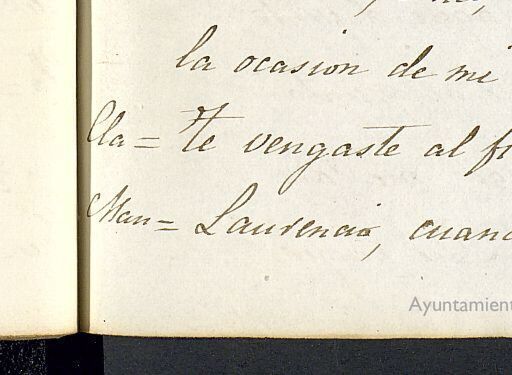 la ocasion de mi
Cla = te vengaste al fi
Man = Laurencio, cuand
Ayuntamient